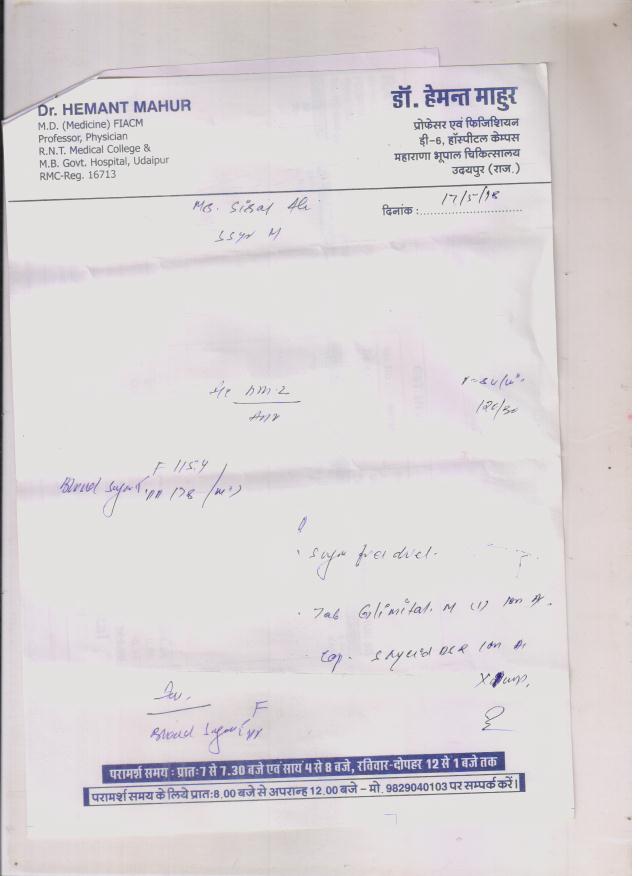 Dr. HEMANT MAHUR
M.D. (Medicine) FIACM
Professor, Physician
R.N.T. Medical College &
M.B. Govt. Hospital, Udaipur
RMC-Reg. 16713
डॉ. हेमन्त माहुर
प्रोफेसर एवं फिजिशियन
डी-6, हॉस्पीटल केम्पस
महाराणा भूपाल चिकित्सालय
उदयपुर (राज.)
दिनांक : 17/5/18
Ali
55yr M
Blood Sugar F 115.4
PP 178
Sugar free diet.
Tab Glimital. M (1)
Cap.
Inv.
Blood Sugar F
PP
परामर्श समय : प्रातः 7 से 7.30 बजे एवं सायं 4 से 8 बजे, रविवार-दोपहर 12 से 1 बजे तक
परामर्श समय के लिये प्रातः8.00 बजे से अपरान्ह 12.00 बजे – मो. 9829040103 पर सम्पर्क करें।